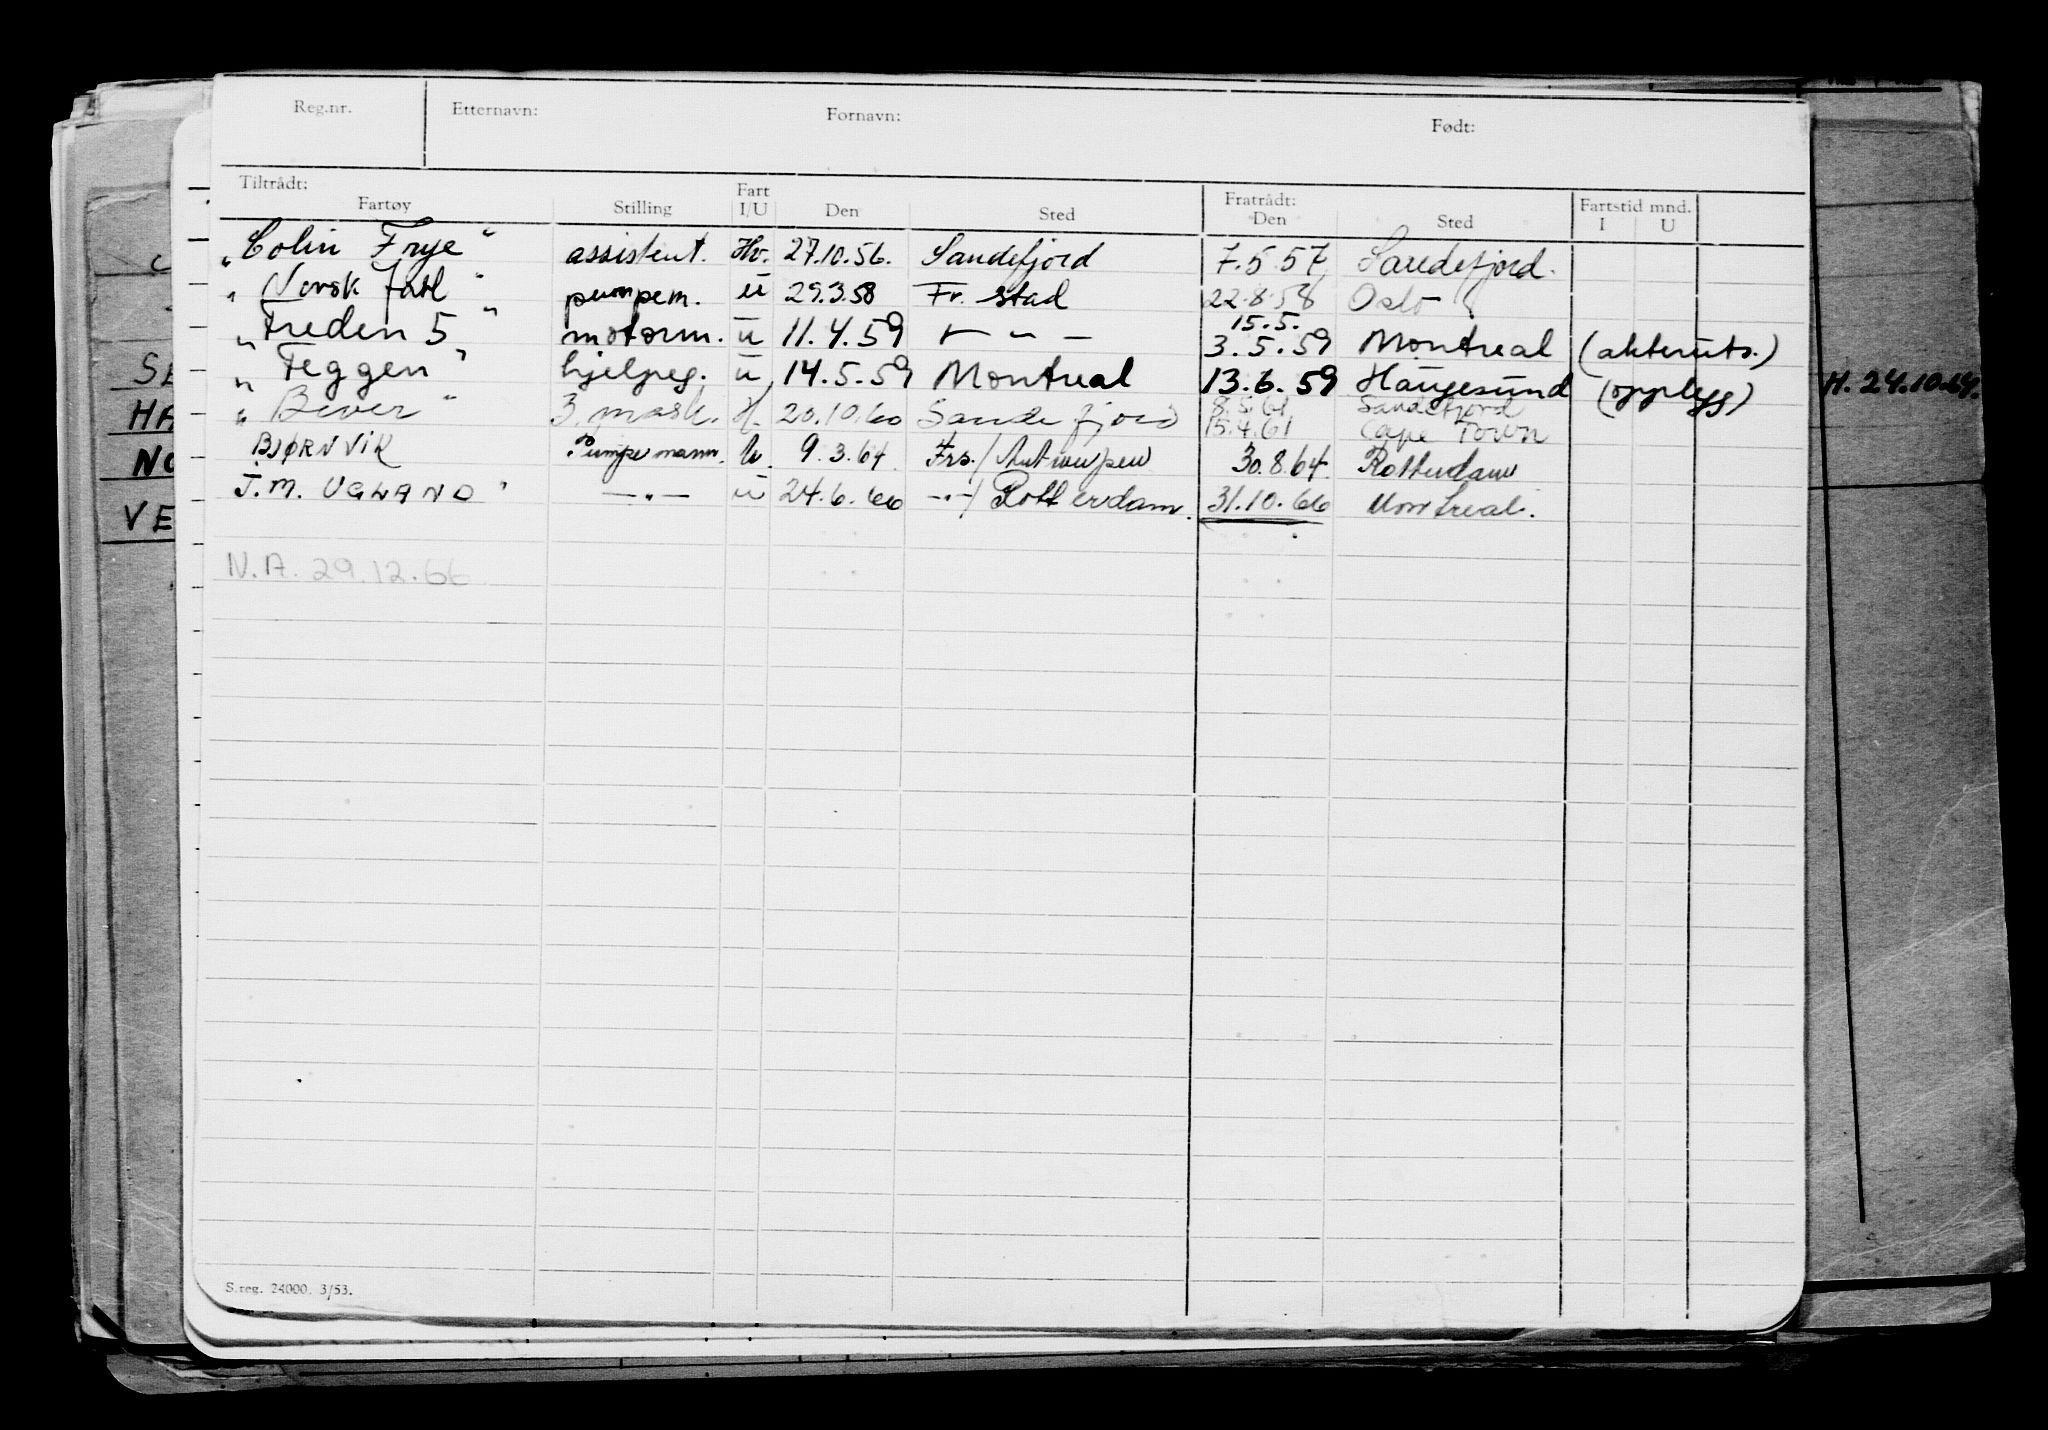 Reg.nr. Etternavn: Fornavn: Født:
Tiltrådt: Fartøy Stilling Fart I/U Den Sted Fratrådt: Den Sted Fartstid mnd. I U
"Colin Frye" assistent. Hv. 27.10.56. Sandefjord 7.5.57 Sandefjord.
" Norsk " pumpem. u 29.3.58 Fr. stad 22.8.58 Oslo
15.5.
"Freden 5" motorm. u 11.4.59 — " — 3.5.59 Montreal (akteruts.)
"Teggen" hjelpeg. u 14.5.59 Montreal 13.6.59 Haugesund (opplegg)
8.5.61 Sandefjord
"Bever" 3. mask. H. 20.10.60 Sandefjord 15.4.61 Cape Town
BJØRNVIK Pumpemann. U. 9.3.64. Frs./Antwerpen 30.8.64. Rotterdam
J.M. UGLAND " — " — u 24.6.66 — " —/Rotterdam. 31.10.66 Montreal.
N.A. 29.12.66
S.reg. 24000. 3/53.
SE
HA
NO
VE
H. 24.10.64.